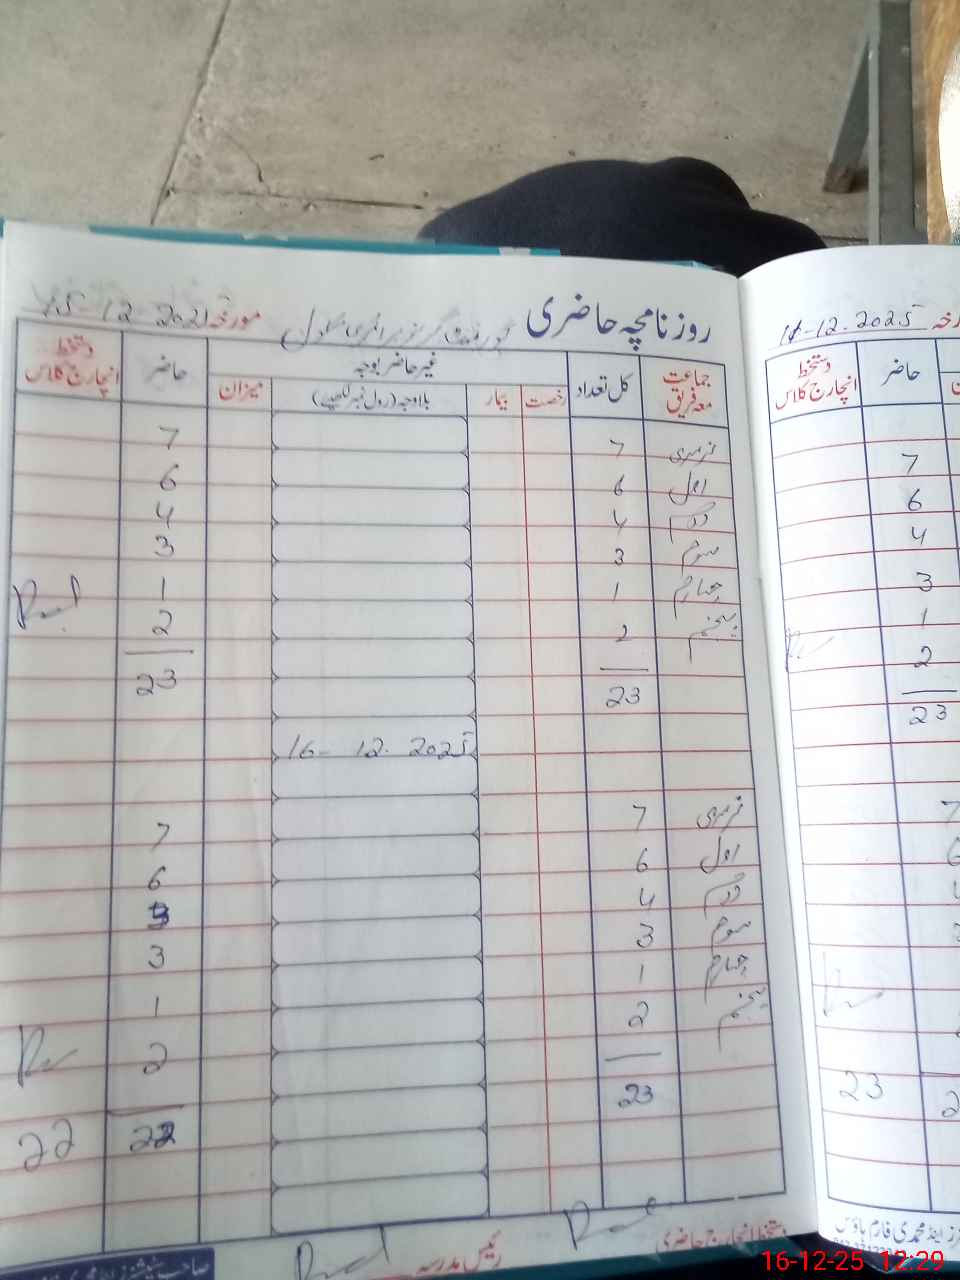 روزنامچہ حاضری گورنمنٹ گرلز پرائمری سکول مورخہ 15-12-2025
جماعت معہ فریق کل تعداد غیر حاضر بوجہ حاضر دستخط انچارج کلاس
رخصت بیمار بلاوجہ (رول نمبر لکھیے) میزان
نرسری 7 7
اول 6 6
دوم 4 4
سوم 3 3
چہارم 1 1
پنجم 2 2
23 23
16-12-2025
نرسری 7 7
اول 6 6
دوم 4 3
سوم 3 3
چہارم 1 1
پنجم 2 2
23 22
22
دستخط انچارج حاضری رئیس مدرسہ
مورخہ -12-2025
حاضر دستخط انچارج کلاس
7
6
4
3
1
2
23
7
23
اینڈ محمدی فارم ہاؤس
16-12-25 12:29